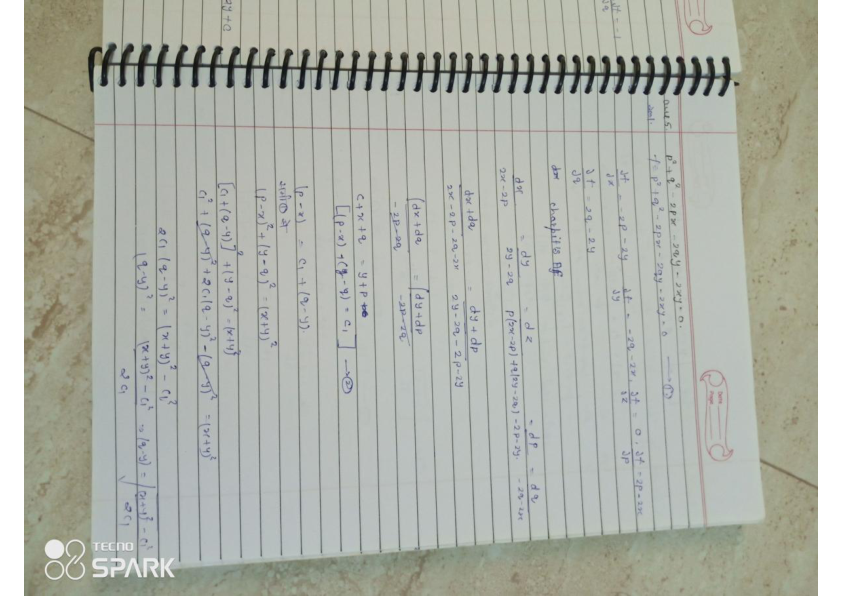 Date
Page
Ques.5 p² + q² - 2px - 2qy + 2xy = 0.
sol: f = p² + q² - 2px - 2qy + 2xy = 0 —①
∂f/∂x = -2p - 2y ∂f/∂y = -2q - 2x, ∂f/∂z = 0, ∂f/∂p = 2p - 2x
∂f/∂q = 2q - 2y
dx/2x-2p = dy/2y-2q = dz/p(2x-2p)+q(2y-2q) = dp/-2p-2y = dq/-2q-2x
dx+dq/2x-2p-2q-2x = dy+dp/2y-2q-2p-2y
∫dx+dq/-2p-2q = ∫dy+dp/-2p-2q
c+x+q = y+p
[(p-x)+(y-q) = c₁] —②
(p-x) = c₁ + (q-y)
(p-x)² + (y-q)² = (x+y)²
[c₁+(q-y)]² + (y-q)² = (x+y)²
c₁² + (q-y)² + 2c₁(q-y) + (q-y)² = (x+y)²
2c₁ (q-y)² = (x+y)² - c₁²
(q-y)² = (x+y)² - c₁²/2c₁ = (q-y) = √(x+y)² - c₁²/2c₁
TECNO
SPARK